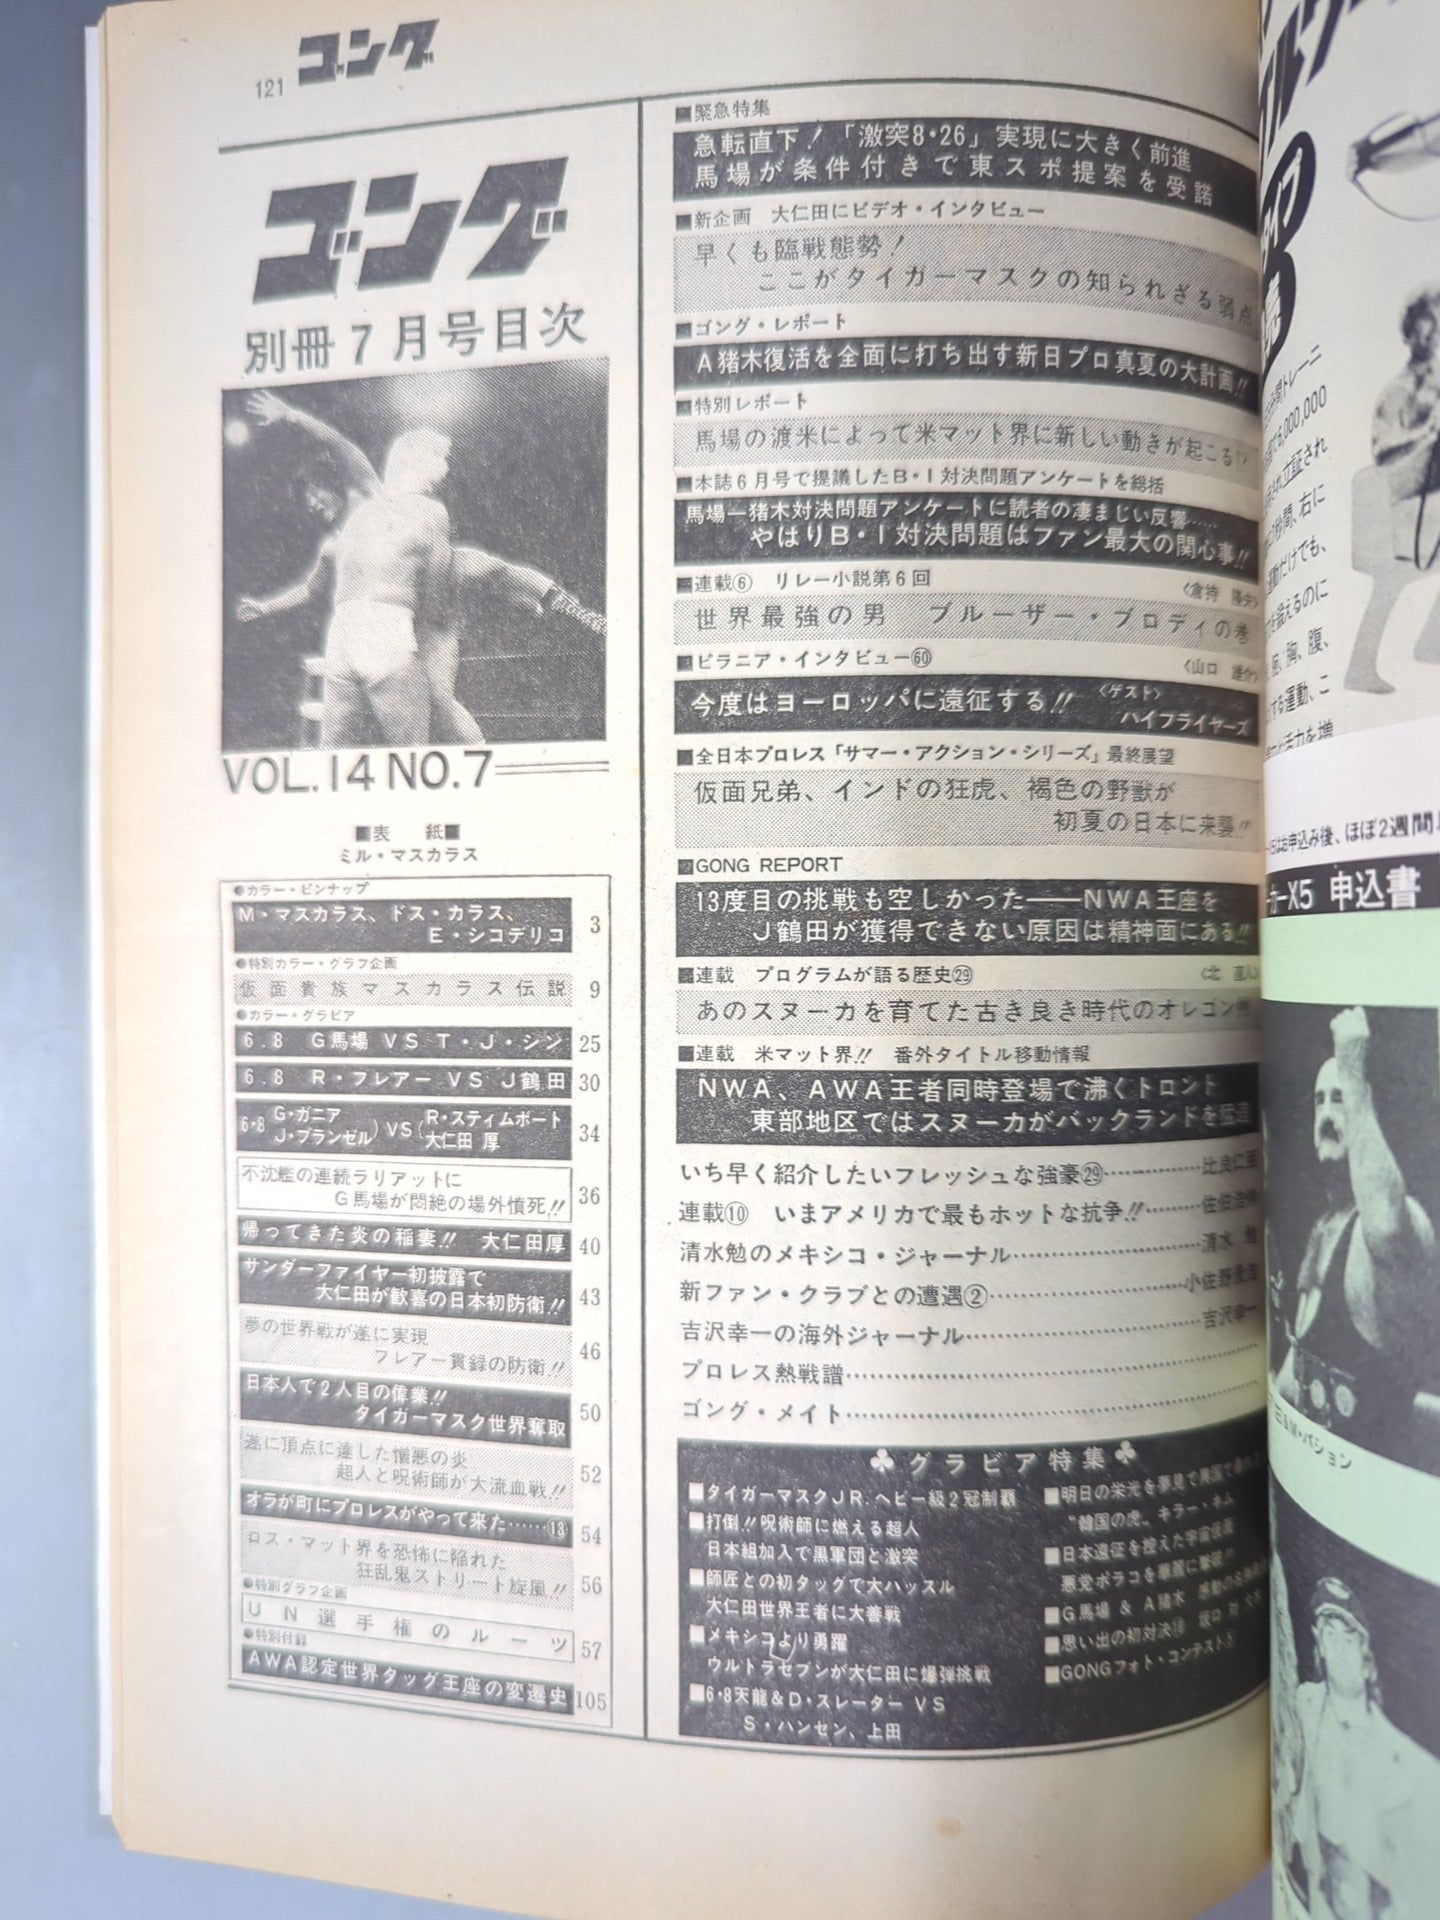 121 ゴング
ゴング
別冊7月号目次
VOL.14 NO.7
■表 紙■
ミル・マスカラス
●カラー・ピンナップ
M・マスカラス、ドス・カラス、
E・シコデリコ 3
●特別カラー・グラフ企画
仮面貴族マスカラス伝説 9
●カラー・グラビア
6.8 G馬場 VS T・J・シン 25
6.8 R・フレアー VS J鶴田 30
6・8 G・ガニア J・ブランゼル) VS (R・スティムボート 大仁田 厚 34
不沈艦の連続ラリアットに
G馬場が悶絶の場外憤死!! 36
帰ってきた炎の稲妻!! 大仁田厚 40
サンダーファイヤー初披露で
大仁田が歓喜の日本初防衛!! 43
夢の世界戦が遂に実現
フレアー貫録の防衛!! 46
日本人で2人目の偉業!!
タイガーマスク世界奪取 50
遂に頂点に達した憎悪の炎
超人と呪術師が大流血戦!! 52
オラが町にプロレスがやって来た……⑬ 54
ロス・マット界を恐怖に陥れた
狂乱鬼ストリート旋風!! 56
●特別グラフ企画
UN選手権のルーツ 57
●特別付録
AWA認定世界タッグ王座の変遷史 105
■緊急特集
急転直下!「激突8・26」実現に大きく前進
馬場が条件付きで東スポ提案を受諾
■新企画 大仁田にビデオ・インタビュー
早くも臨戦態勢!
ここがタイガーマスクの知られざる弱点
■ゴング・レポート
A猪木復活を全面に打ち出す新日プロ真夏の大計画!!
■特別レポート
馬場の渡米によって米マット界に新しい動きが起こる!?
■本誌6月号で提議したB・I対決問題アンケートを総括
馬場—猪木対決問題アンケートに読者の凄まじい反響……
やはりB・I対決問題はファン最大の関心事!!
■連載⑥ リレー小説第6回 〈倉持 隆夫〉
世界最強の男 ブルーザー・ブロディの巻
■ピラニア・インタビュー㊿ 〈山口 雄介〉
今度はヨーロッパに遠征する!! 〈ゲスト〉
ハイフライヤーズ
■全日本プロレス「サマー・アクション・シリーズ」最終展望
仮面兄弟、インドの狂虎、褐色の野獣が
初夏の日本に来襲!!
■GONG REPORT
13度目の挑戦も空しかった——NWA王座を
J鶴田が獲得できない原因は精神面にある!!
■連載 プログラムが語る歴史㉙ 〈北 直人〉
あのスヌーカを育てた古き良き時代のオレゴン州
■連載 米マット界!! 番外タイトル移動情報
NWA、AWA王者同時登場で沸くトロント
東部地区ではスヌーカがバックランドを猛追
いち早く紹介したいフレッシュな強豪㉙…………比良仁
連載⑩ いまアメリカで最もホットな抗争!!………佐伯
清水勉のメキシコ・ジャーナル…………………清水 勉
新ファン・クラブとの遭遇②…………………小佐野景浩
吉沢幸一の海外ジャーナル…………………吉沢幸一
プロレス熱戦譜……………………
ゴング・メイト……………………
♣グラビア特集♣
■タイガーマスクJR.ヘビー級2冠制覇
■打倒!!呪術師に燃える超人
日本組加入で黒軍団と激突
■師匠との初タッグで大ハッスル
大仁田世界王者に大善戦
■メキシコより勇躍
ウルトラセブンが大仁田に爆弾挑戦
■6・8天龍&D・スレーター VS
S・ハンセン、上田
■明日の栄光を夢見て異国で
“韓国の虎”キラー・キム
■日本遠征を控えた宇宙仮面
悪党ポラコを華麗に撃破!!
■G馬場 & A猪木 感動の
■思い出の初対決⑱ 坂口 対 大木
■GONGフォト・コンテスト⑤
6,000,000
お申込み後、ほぼ2週間
-X5 申込書